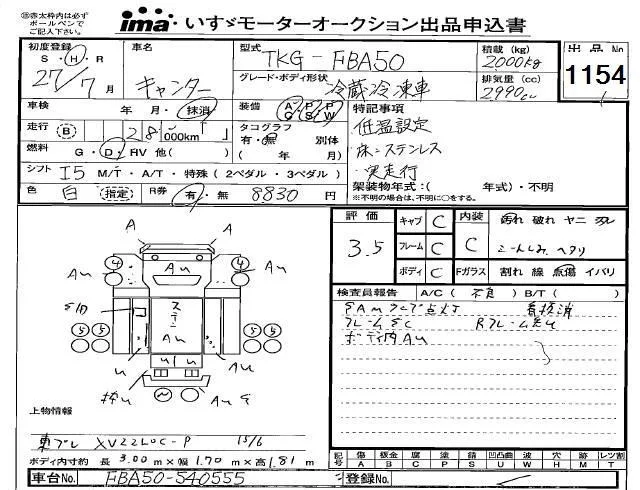 ※赤太枠内は必ず
ボールペンで
ご記入下さい。
ima いすゞモーターオークション出品申込書
初度登録 S・H・R 27/7月
車名 キャンター
型式 TKG-FBA50
積載(kg) 2000kg
出品No 1154
グレード・ボディ形状 冷蔵冷凍車
排気量(cc) 2990cc
車検 年 月・抹消
装備 A/C P/S P/W
特記事項
走行 B 28,000km
タコグラフ 有・無 別体 ( 年 月)
低温設定
床:ステンレス
実走行
燃料 G・D・HV 他( )
シフト I5 M/T・A/T・特殊(2ペダル・3ペダル)
架装物年式:( 年式)・不明
※不明の場合は、不明に○をする。
色 白 (指定) R券 有・無 8830円
評価 3.5
キャブ C 内装 C 汚れ 破れ ヤニ スレ
フレーム C
ボディ C Fガラス 割れ 線 点傷 イバリ
検査員報告 A/C( 不良 ) B/T( )
A A
Au
Au Au
4 4
ステン
Au
5 5 5 5
u u
上物情報
東プレ XV22LOC-P 15/6
ボディ内寸約 長 3.00 m×幅 1.70 m×高 1.81 m
記号 傷 板金 腐 塗 錆 凹凸曲 波 穴 跡 レツ割
A B C P S U W H M T
車台No. FBA50-540555
登録No.